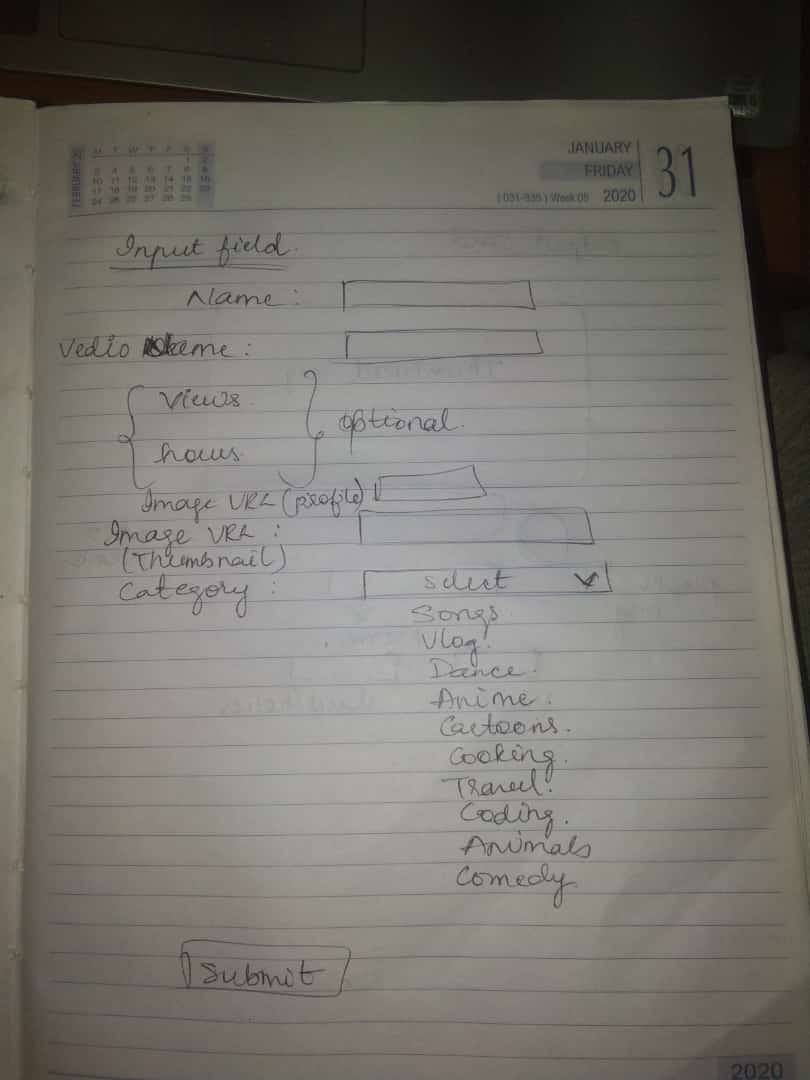 FEBRUARY 20
M T W T F S S
1 2
3 4 5 6 7 8 9
10 11 12 13 14 15 16
17 18 19 20 21 22 23
24 25 26 27 28 29
JANUARY
FRIDAY
31
(031-335) Week 05 2020
Input field.
Name :
Vedio :
Views.
hours.
optional.
Image URL (profile)
Image URL :
(Thumbnail)
Category : Select
Songs.
Vlog.
Dance.
Anime.
Cartoons.
Cooking.
Travel.
Coding.
Animals
Comedy.
Submit
2020